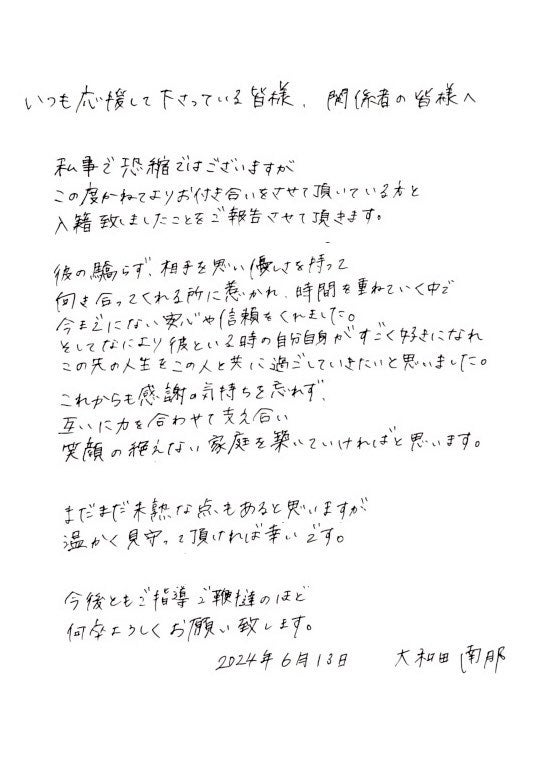 いつも応援して下さっている皆様、関係者の皆様へ
私事で恐縮ではございますが
この度かねてよりお付き合いをさせて頂いている方と
入籍致しましたことをご報告させて頂きます。
彼の驕らず、相手を思い優しさを持って
向き合ってくれる所に惹かれ、時間を重ねていく中で
今までにない安心や信頼をくれました。
そしてなにより彼といる時の自分自身がすごく好きになれ
この先の人生をこの人と共に過ごしていきたいと思いました。
これからも感謝の気持ちを忘れず、
互いに力を合わせて支え合い
笑顔の絶えない家庭を築いていければと思います。
まだまだ未熟な点もあると思いますが
温かく見守って頂ければ幸いです。
今後ともご指導ご鞭撻のほど
何卒よろしくお願い致します。
2024年6月13日 大和田南那